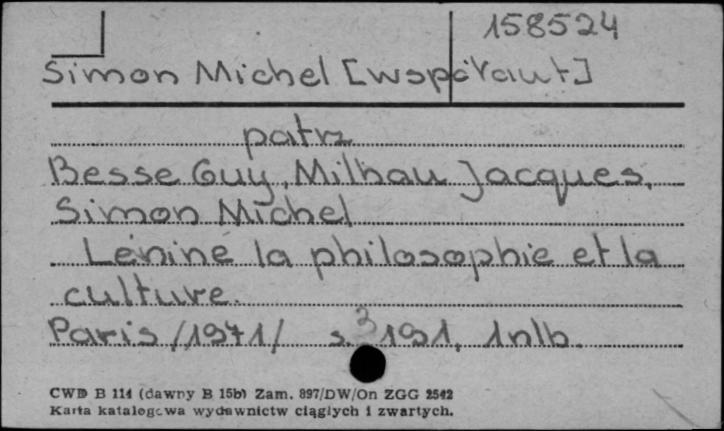 158524
Simon Michel [współaut]
patrz
Besse Guy, Milhau Jacques,
Simon Michel
Lénine la philosophie et la
culture.
Paris /1971/ s. 3 191, 1nlb.
CWD B 114 (dawny B 15b) Zam. 897/DW/On ZGG 2542
Karta katalogowa wydawnictw ciągłych i zwartych.